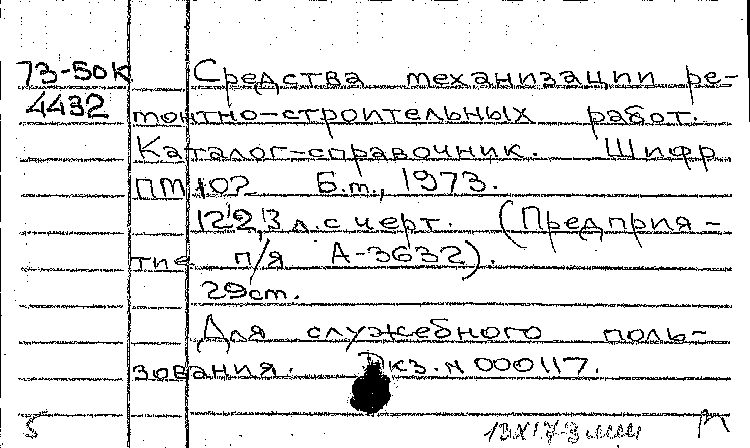 73-50к Средства механизации ре-
4432 монтно-строительных работ.
Каталог-справочник. Шифр
ПМ 102 Б.м., 1973.
122,3 л. с черт. (Предприя-
тие п/я А-3632).
29см.
Для служебного поль-
зования. Экз. N 000117.
5